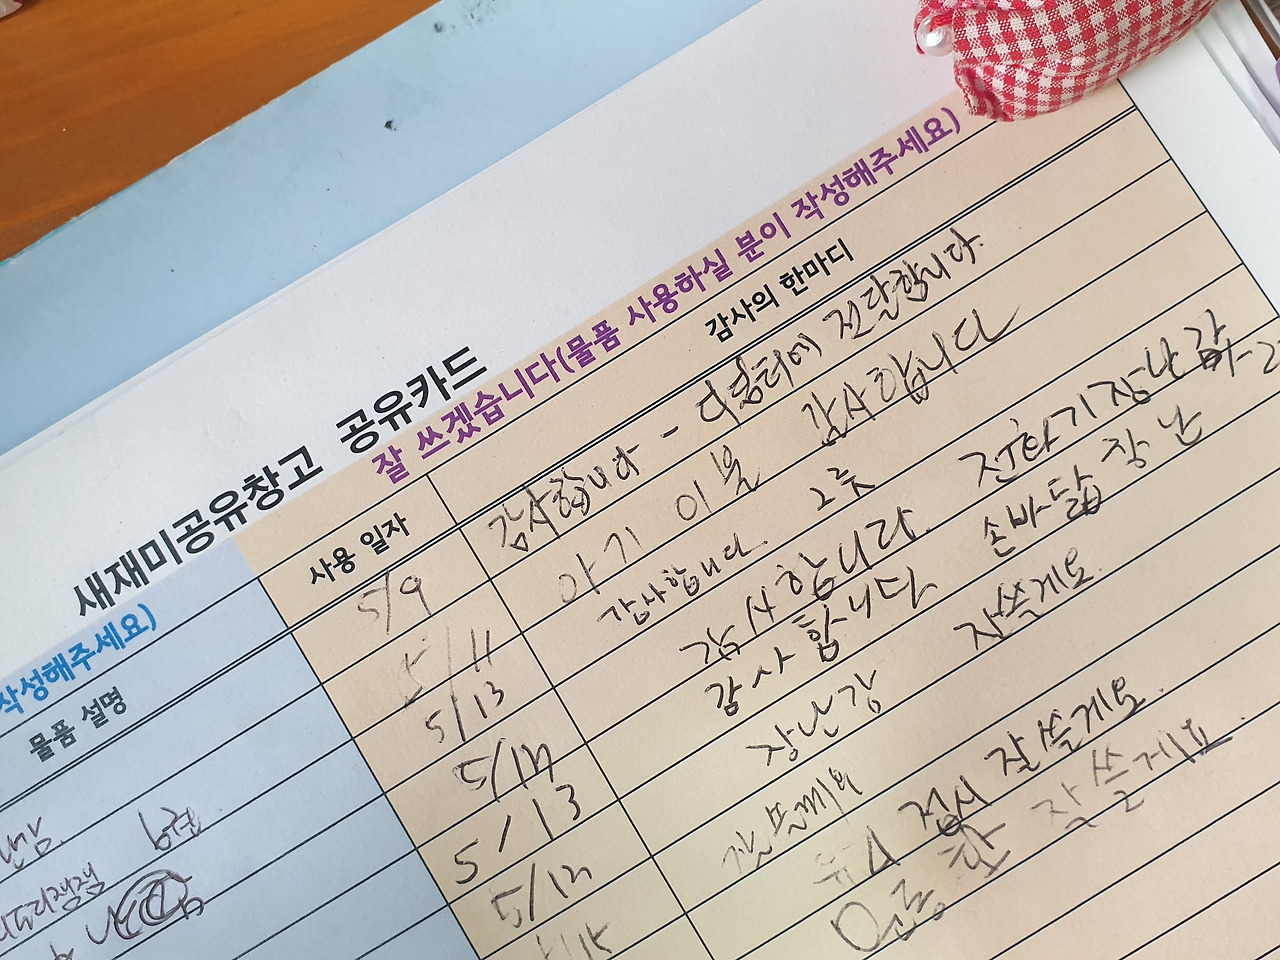 새재미공유창고 공유카드
작성해주세요)
잘 쓰겠습니다(물품 사용하실 분이 작성해주세요)
물품 설명
사용 일자
감사의 한마디
5/9 감사합니다 - 다움터에 전달합니다.
5/11 아기 이불 감사합니다
5/13 감사합니다. 그릇
5/14 감사합니다 전화기장난감
5/13 감사합니다 손바닥장난
5/12 장난감 잘쓸게요.
5/15 잘쓸께요
접시 잘쓸게요.
잘쓸게요.
6권